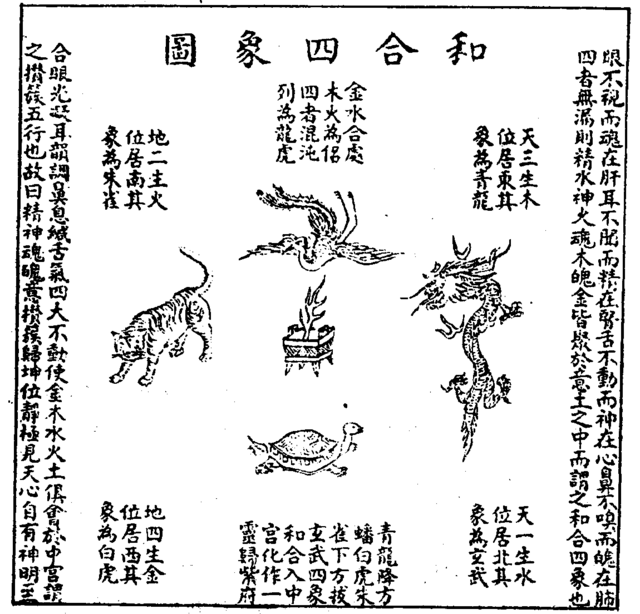 和合四象圖
眼不視而魂在肝耳不聞而精在腎舌不動而神在心鼻不嗅而魄在肺
四者無漏則精水神火魂木魄金皆聚於意土之中而謂之和合四象也
天三生木
位居東其
象為青龍
金水合處
木火為侶
四者混沌
列為龍虎
地二生火
位居南其
象為朱雀
天一生水
位居北其
象為玄武
青龍降方
蟠白虎朱
雀下方拔
玄武四象
和合入中
宮化作一
靈歸紫府
地四生金
位居西其
象為白虎
合眼光凝耳韻調鼻息緘舌氣四大不動使金木水火土俱會於中宮謂
之攢簇五行也故曰精神魂魄意攢簇歸坤位靜極見天心自有神明至